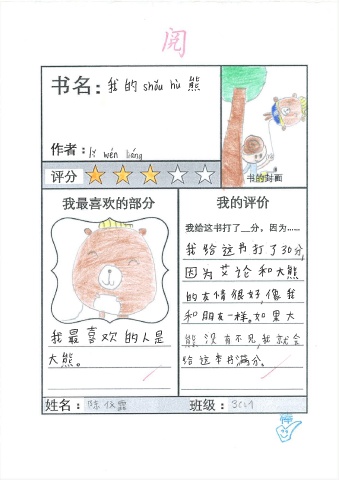 阅
书名：我的 shǒu hù 熊
作者： wén liáng
评分
书的封面
我最喜欢的部分
我最喜欢的人是
大熊。
我的评价
我给这书打了__分，因为……
我给这书打了30分，
因为艾伦和大熊
的友情很好，像我
和朋友一样。如果大
熊没有不见，我就会
给这本书满分。
姓名：陈
班级：